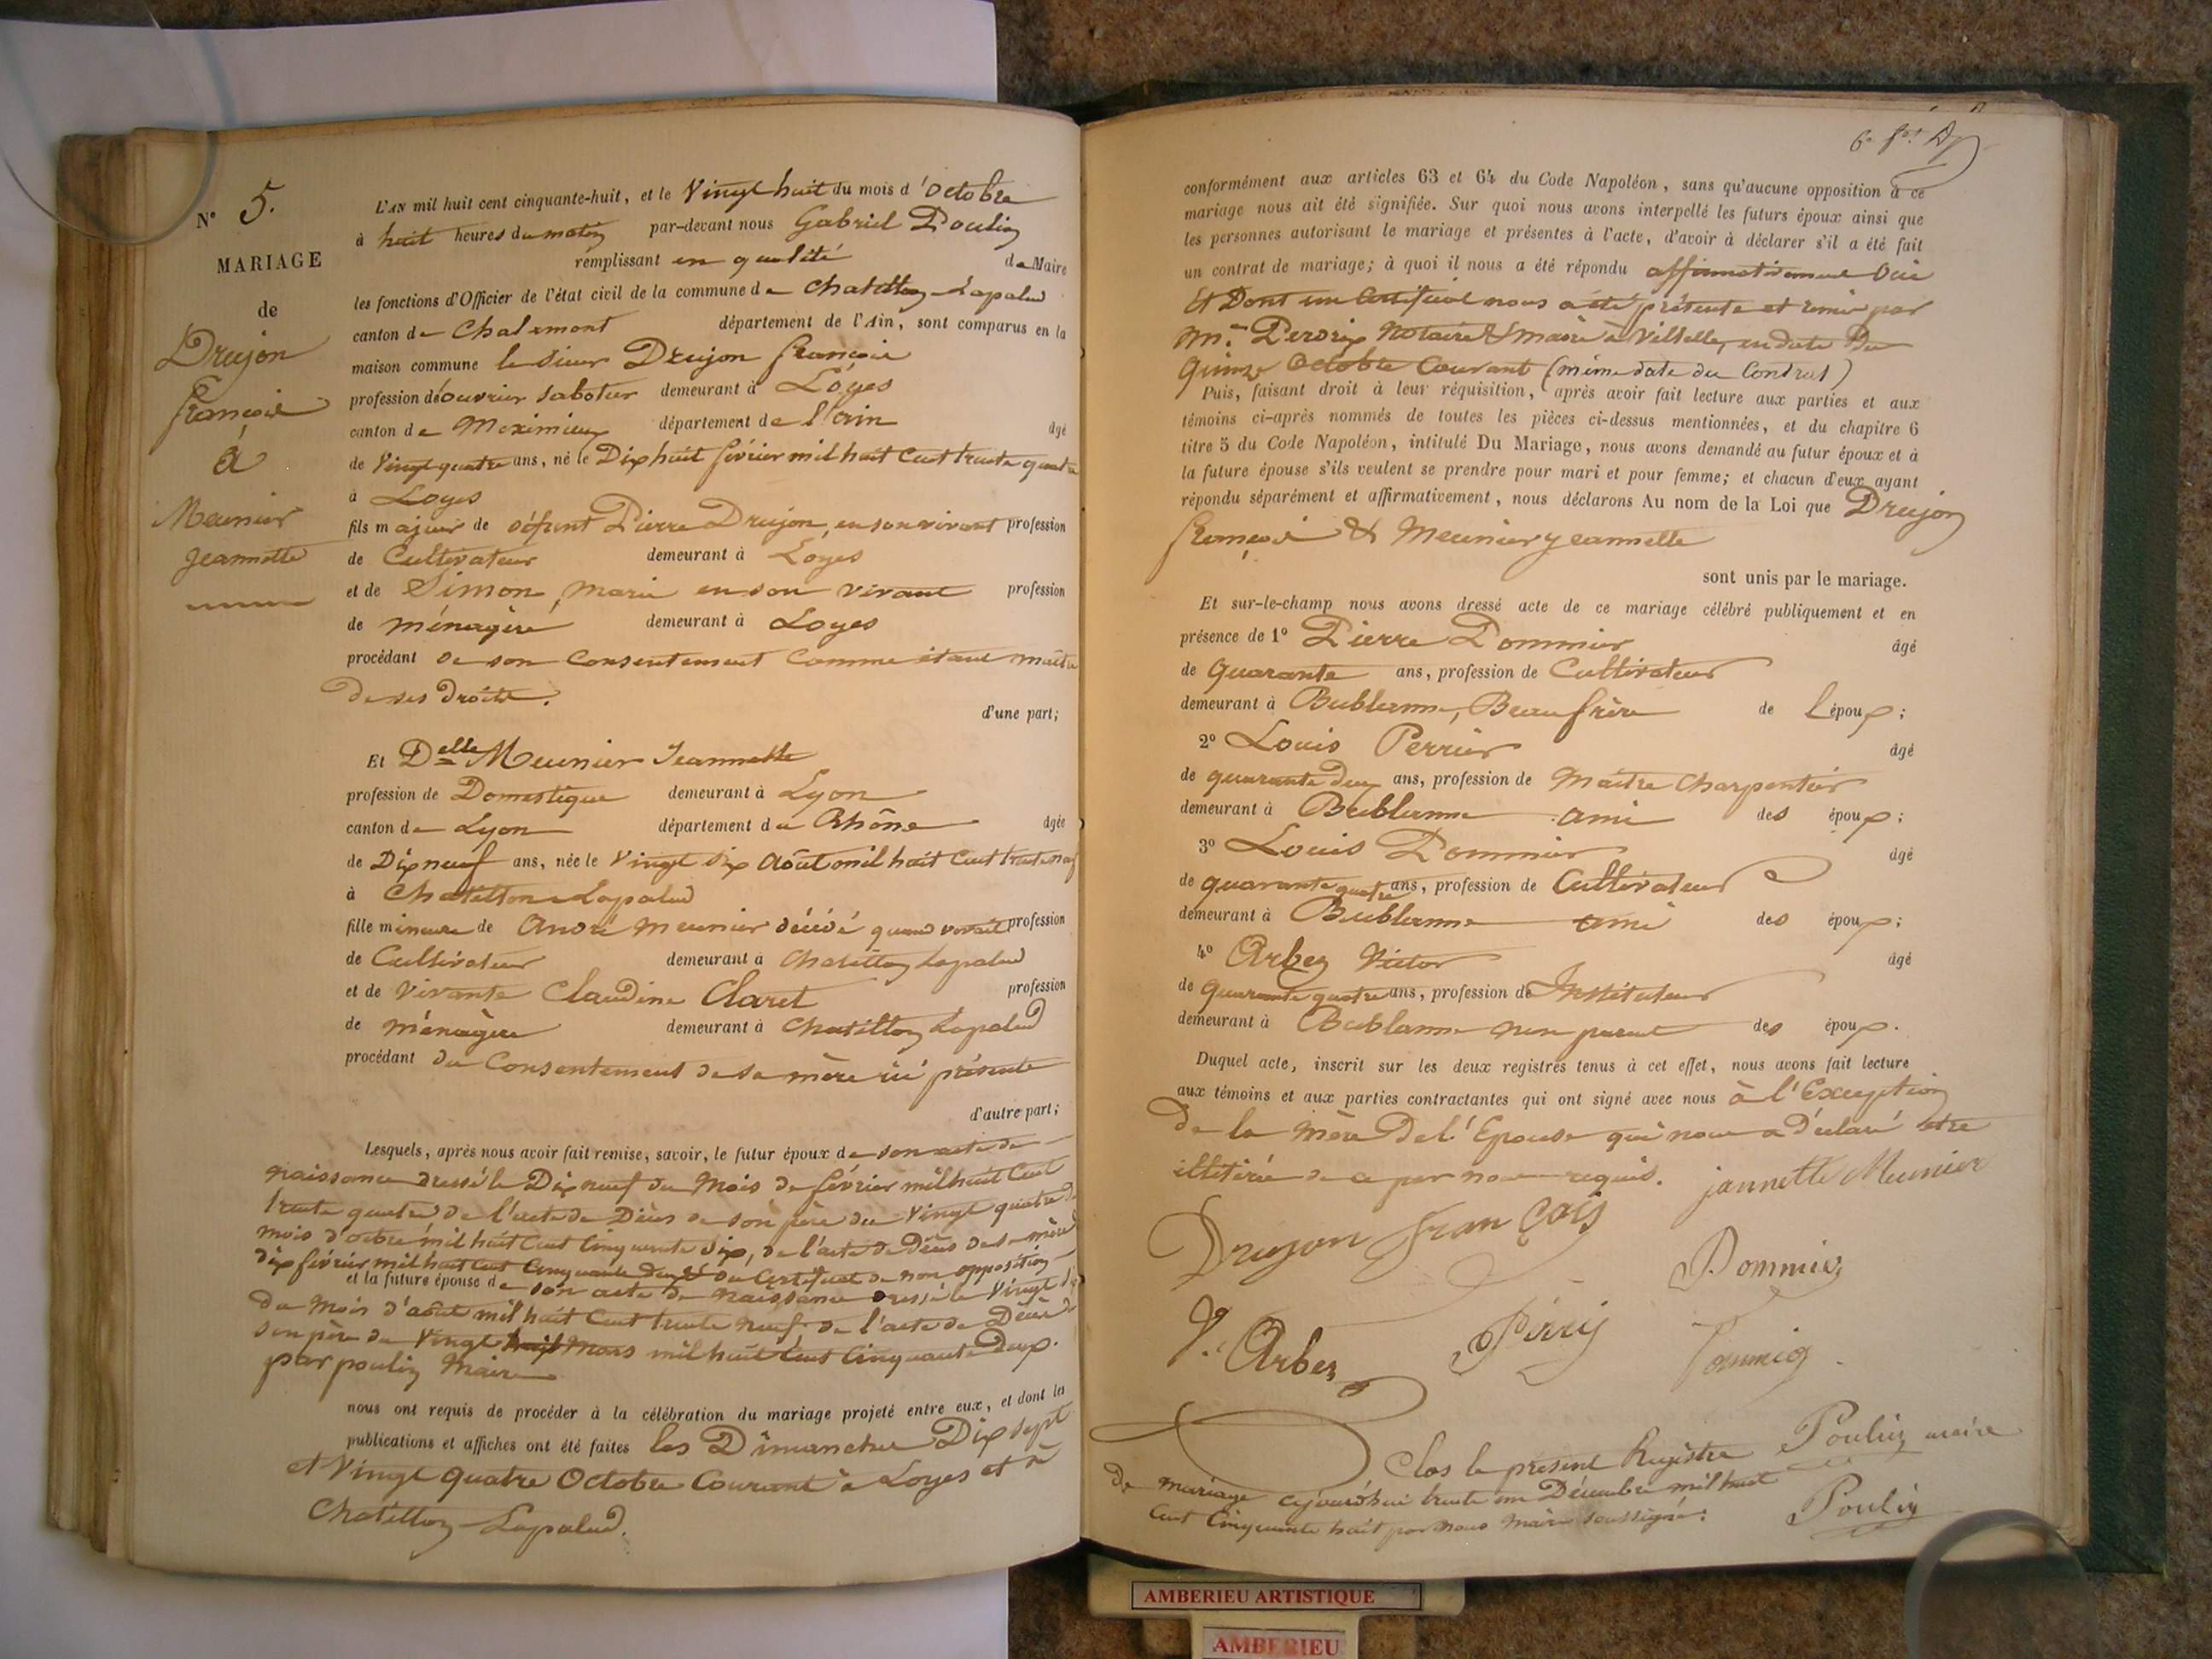 N° 5.
MARIAGE
de
Drujon
François
à
Meunier
Jeannette
L'AN mil huit cent cinquante-huit, et le Vingt huit du mois d'octobre
à huit heures du matin par-devant nous Gabriel Poulin
remplissant en qualité de Maire
les fonctions d'Officier de l'état civil de la commune de Chatillon Lapalud
canton de Chalamont département de l'Ain, sont comparus en la
maison commune le sieur Drujon françois
profession d'ouvrier sabotier demeurant à Loyes
canton de Meximieux département de l'ain âgé
de Vingt quatre ans, né le Dix huit février mil huit Cent trente quatre
à Loyes
fils majeur de défunt Pierre Drujon, en son vivant profession
de Cultivateur demeurant à Loyes
et de Simon, Marie en son vivant profession
de ménagère demeurant à Loyes
procédant de son Consentement Comme étant maitre
de ses droits.
d'une part;
Et Delle Meunier Jeannette
profession de Domestique demeurant à Lyon
canton de Lyon département du Rhône âgée
de Dix neuf ans, née le Vingt six Août mil huit Cent trente neuf
à Chatillon Lapalud
fille mineure de André Meunier décédé quand vivait profession
de Cultivateur demeurant à Chatillon Lapalud
et de Vivante Claudine Claret profession
de ménagère demeurant à Chatillon Lapalud
procédant du Consentement de sa mère ici présente
d'autre part;
Lesquels, après nous avoir fait remise, savoir, le futur époux de son acte de
naissance dressé le Dix neuf du Mois de février mil huit Cent
trente quatre de l'acte de Décès de son père du Vingt quatre du
mois d'octbre mil huit Cent Cinquante six, de l'acte de Décès de sa mère
dix février mil huit Cent Cinquante Deux & du Certificat de non opposition
et la future épouse de son acte de naissance dressé le Vingt six
du Mois d'août mil huit Cent trente neuf de l'acte de Décès de
son père du Vingt Mars mil huit Cent Cinquante Deux.
par poulin Maire
nous ont requis de procéder à la célébration du mariage projeté entre eux, et dont les
publications et affiches ont été faites les Dimanches Dix sept
et Vingt quatre Octobre Courant à Loyes et à
Chatillon Lapalud.
conformément aux articles 63 et 64 du Code Napoléon, sans qu'aucune opposition à ce
mariage nous ait été signifiée. Sur quoi nous avons interpellé les futurs époux ainsi que
les personnes autorisant le mariage et présentes à l'acte, d'avoir à déclarer s'il a été fait
un contrat de mariage; à quoi il nous a été répondu affirmativement Oui
Et Dont un Certificat nous a été présenté et remis par
Me Perdrix Notaire & maire à Villette, en date Du
Quinze Octobre Courant (même date du Contrat)
Puis, faisant droit à leur réquisition, après avoir fait lecture aux parties et aux
témoins ci-après nommés de toutes les pièces ci-dessus mentionnées, et du chapitre 6
titre 5 du Code Napoléon, intitulé Du Mariage, nous avons demandé au futur époux et à
la future épouse s'ils veulent se prendre pour mari et pour femme; et chacun d'eux ayant
répondu séparément et affirmativement, nous déclarons Au nom de la Loi que Drujon
François & Meunier Jeannette
sont unis par le mariage.
Et sur-le-champ nous avons dressé acte de ce mariage célébré publiquement et en
présence de 1° Pierre Pommier âgé
de Quarante ans, profession de Cultivateur
demeurant à Bublanne, Beau frère de l'époux;
2° Louis Perrier âgé
de quarante deux ans, profession de Maitre Charpentier
demeurant à Bublanne ami des époux;
3° Louis Pommier âgé
de quarante quatre ans, profession de Cultivateur
demeurant à Bublanne ami des époux;
4° Arbez Victor âgé
de Quarante quatre ans, profession de Instituteur
demeurant à Bublanne non parent des époux.
Duquel acte, inscrit sur les deux registres tenus à cet effet, nous avons fait lecture
aux témoins et aux parties contractantes qui ont signé avec nous à l'Exception
de la Mère De l'Epouse qui nous a déclaré être
illitérée de ce par nous requis. jannette Meunier
Drujon françois
Pommier
V. Arbez
Poulin maire
Clos le présent Registre
de mariage aujourd'hui trente un Décembre mil huit
Cent Cinquante huit par nous Maire soussigné.
Poulin
AMBERIEU ARTISTIQUE
AMBERIEU